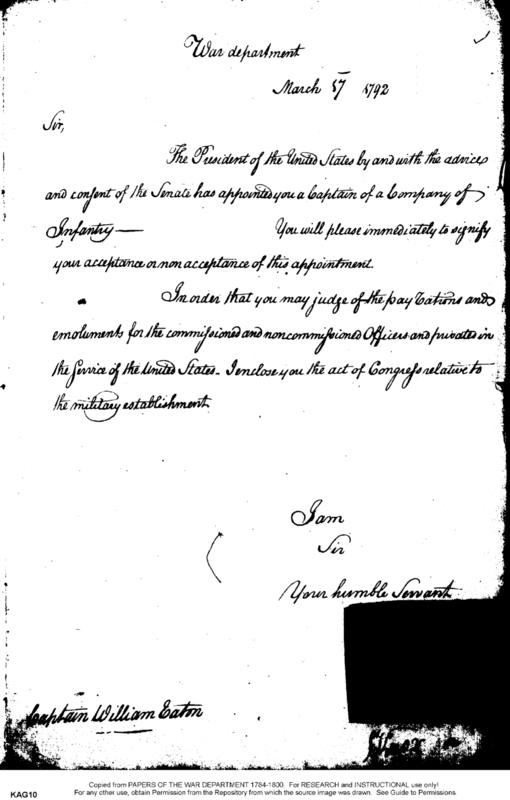 War department
March 17 1792
Sir,
The President of the United States by and with the advice
and consent of the Senate has appointed you a Captain of a Company of
Infantry — You will please immediately to signify
your acceptance or non acceptance of this appointment.
In order that you may judge of the pay rations and
emoluments for the commissioned and noncommissioned Officers and privates in
the service of the United States - I enclose you the act of Congress relative to
the military establishment
I am
Sir
Your humble Servant
Captain William Eaton
KAG10
Copied from PAPERS OF THE WAR DEPARTMENT 1784-1800. For RESEARCH and INSTRUCTIONAL use only!
For any other use, obtain Permission from the Repository from which the source image was drawn. See Guide to Permissions.